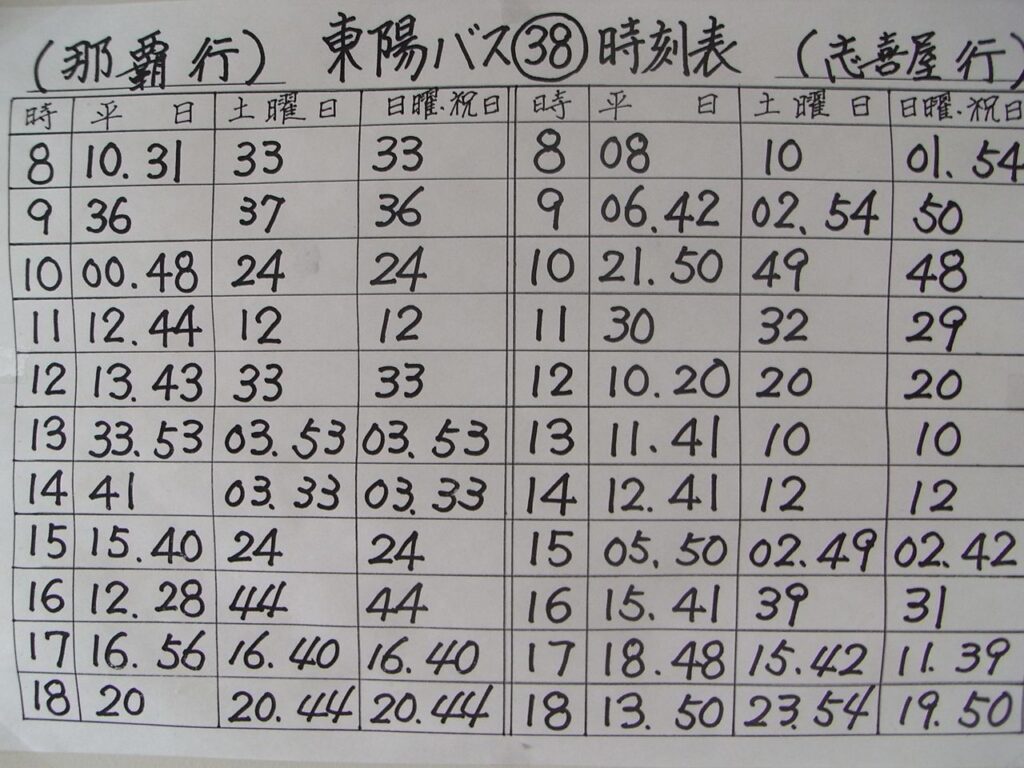 (那覇行) 東陽バス㊳時刻表 (志喜屋行)
時 平日 土曜日 日曜・祝日 時 平日 土曜日 日曜・祝日
8 10.31 33 33 8 08 10 01.54
9 36 37 36 9 06.42 02.54 50
10 00.48 24 24 10 21.50 49 48
11 12.44 12 12 11 30 32 29
12 13.43 33 33 12 10.20 20 20
13 33.53 03.53 03.53 13 11.41 10 10
14 41 03.33 03.33 14 12.41 12 12
15 15.40 24 24 15 05.50 02.49 02.42
16 12.28 44 44 16 15.41 39 31
17 16.56 16.40 16.40 17 18.48 15.42 11.39
18 20 20.44 20.44 18 13.50 23.54 19.50